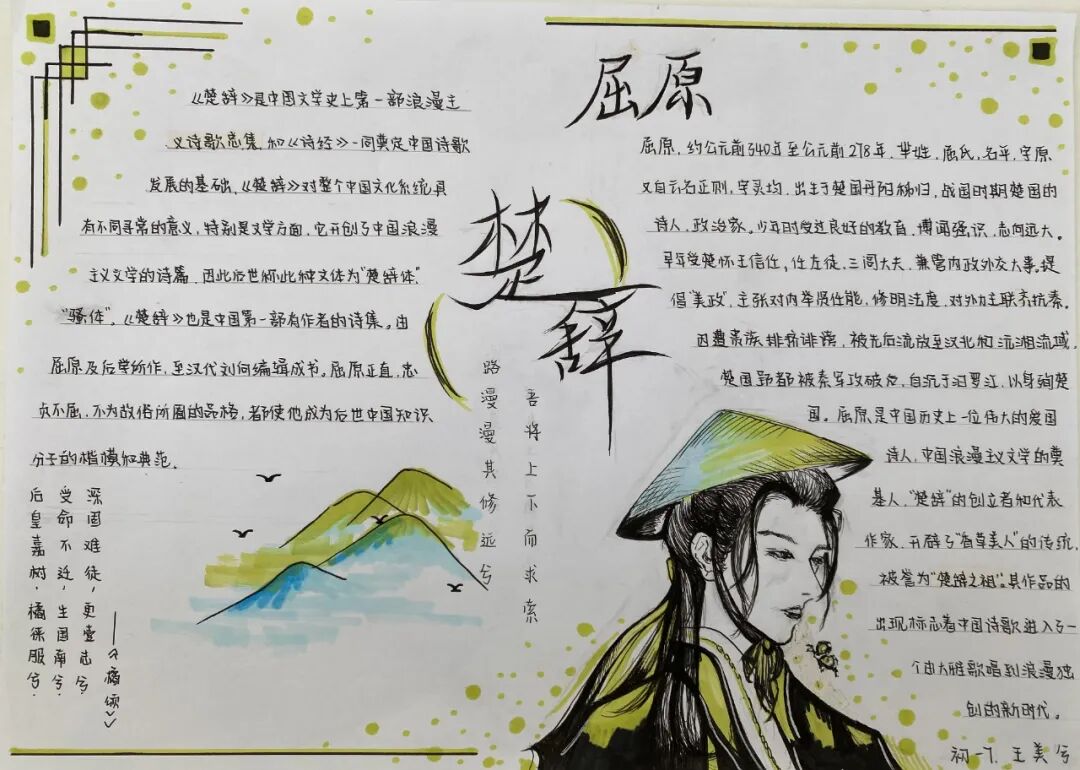 《楚辞》是中国文学史上第一部浪漫主
义诗歌总集 和《诗经》一同奠定中国诗歌
发展的基础、《楚辞》对整个中国文化系统具
有不同寻常的意义，特别是文学方面，它开创了中国浪漫
主义文学的诗篇、因此后世称此种文体为"楚辞体"
"骚体"。《楚辞》也是中国第一部有作者的诗集。由
屈原及后学所作，至汉代刘向编辑成书。屈原正直，忠
贞不屈，不为故俗所囿的品格，都使他成为后世中国知识
分子的楷模和典范．
楚辞
路漫漫其修远兮
吾将上下而求索
后皇嘉树，橘徕服兮．
受命不迁，生国南兮．
深固难徙，更壹志兮
——《橘颂》
屈原
屈原，约公元前340年至公元前278年，芈姓，屈氏，名平，字原
又自云名正则，字灵均，出生于楚国丹阳秭归，战国时期楚国的
诗人，政治家。少年时受过良好的教育，博闻强识，志向远大。
早年受楚怀王信任，任左徒，三闾大夫，兼管内政外交大事，提
倡"美政"，主张对内举贤任能，修明法度，对外力主联齐抗秦。
因遭贵族排挤诽谤，被先后流放至汉北和沅湘流域．
楚国郢都被秦军攻破后，自沉于汨罗江，以身殉楚
国。屈原是中国历史上一位伟大的爱国
诗人，中国浪漫主义文学的奠
基人，"楚辞"的创立者和代表
作家，开辟了"香草美人"的传统，
被誉为"楚辞之祖"。其作品的
出现标志着中国诗歌进入了一
个由大雅歌唱到浪漫独
创的新时代。
初一7．王美兮